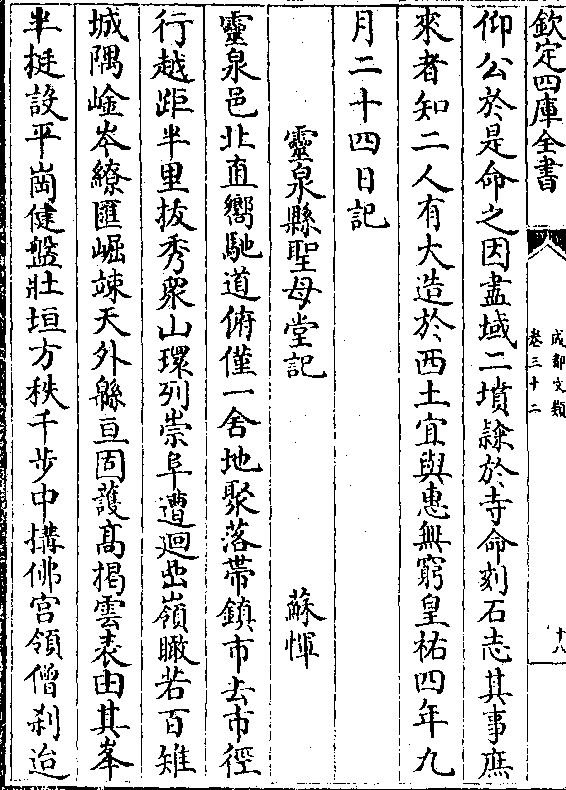 欽定四庫全書
成都文類
卷三十二
十八
仰公於是命之因盡域二墳隷於寺命刻石志其事庶
來者知二人有大造於西土宜與惠無窮皇祐四年九
月二十四日記
靈泉縣聖母堂記 蘇惲
靈泉邑北直嚮馳道俯僅一舍地聚落帶鎮市去市徑
行越距半里抜秀衆山環列崇阜遭迴出嶺瞰若百雉
城隅崯岑繚匯崛竦天外緜亘固護髙揭雲表由其峯
半挺設平崗健盤壯垣方秩千步中搆佛宫領僧刹迨